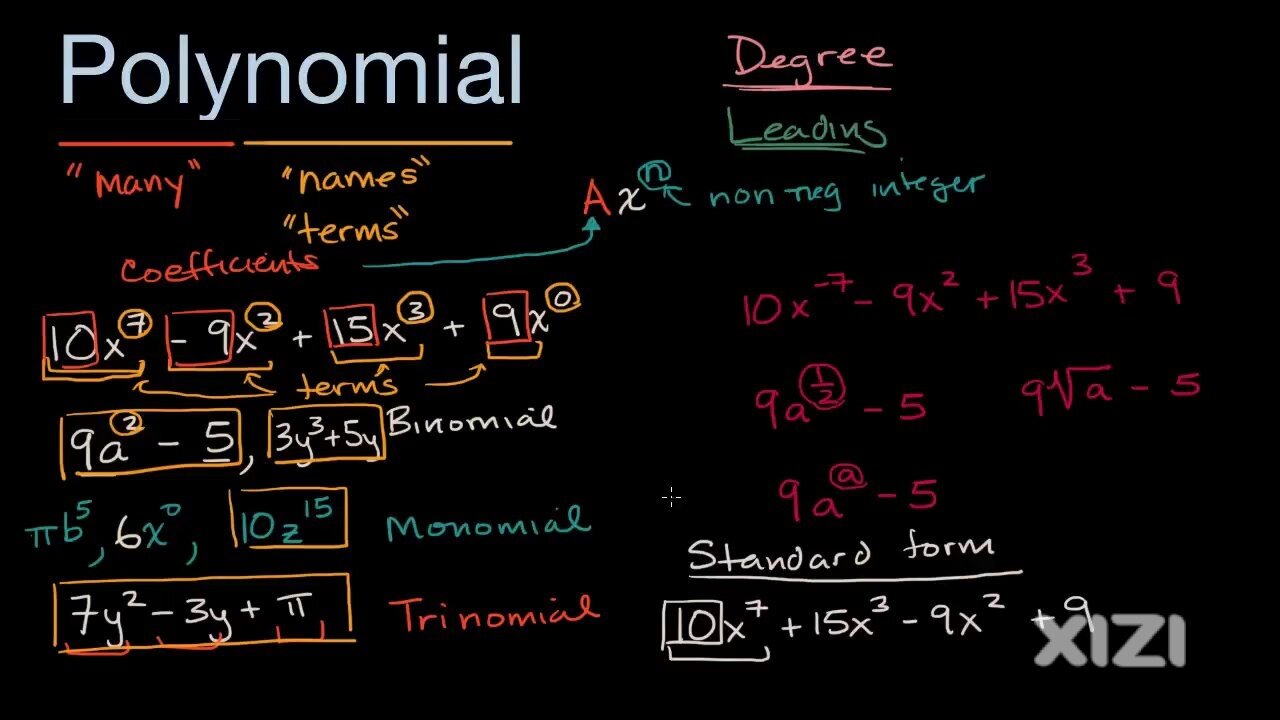 Polynomial
"many" "names"
"terms"
Coefficients
10x⁷ - 9x² + 15x³ + 9x⁰
terms
9a² - 5, 3y³+5y Binomial
πb⁵, 6x⁰, 10z¹⁵ Monomial
7y² - 3y + π Trinomial
Degree
Leading
Axⁿ ← non neg integer
10x⁻⁷ - 9x² + 15x³ + 9
9a^(1/2) - 5 9√a - 5
9aᵃ - 5
Standard form
10x⁷ + 15x³ - 9x² + 9
XIZI